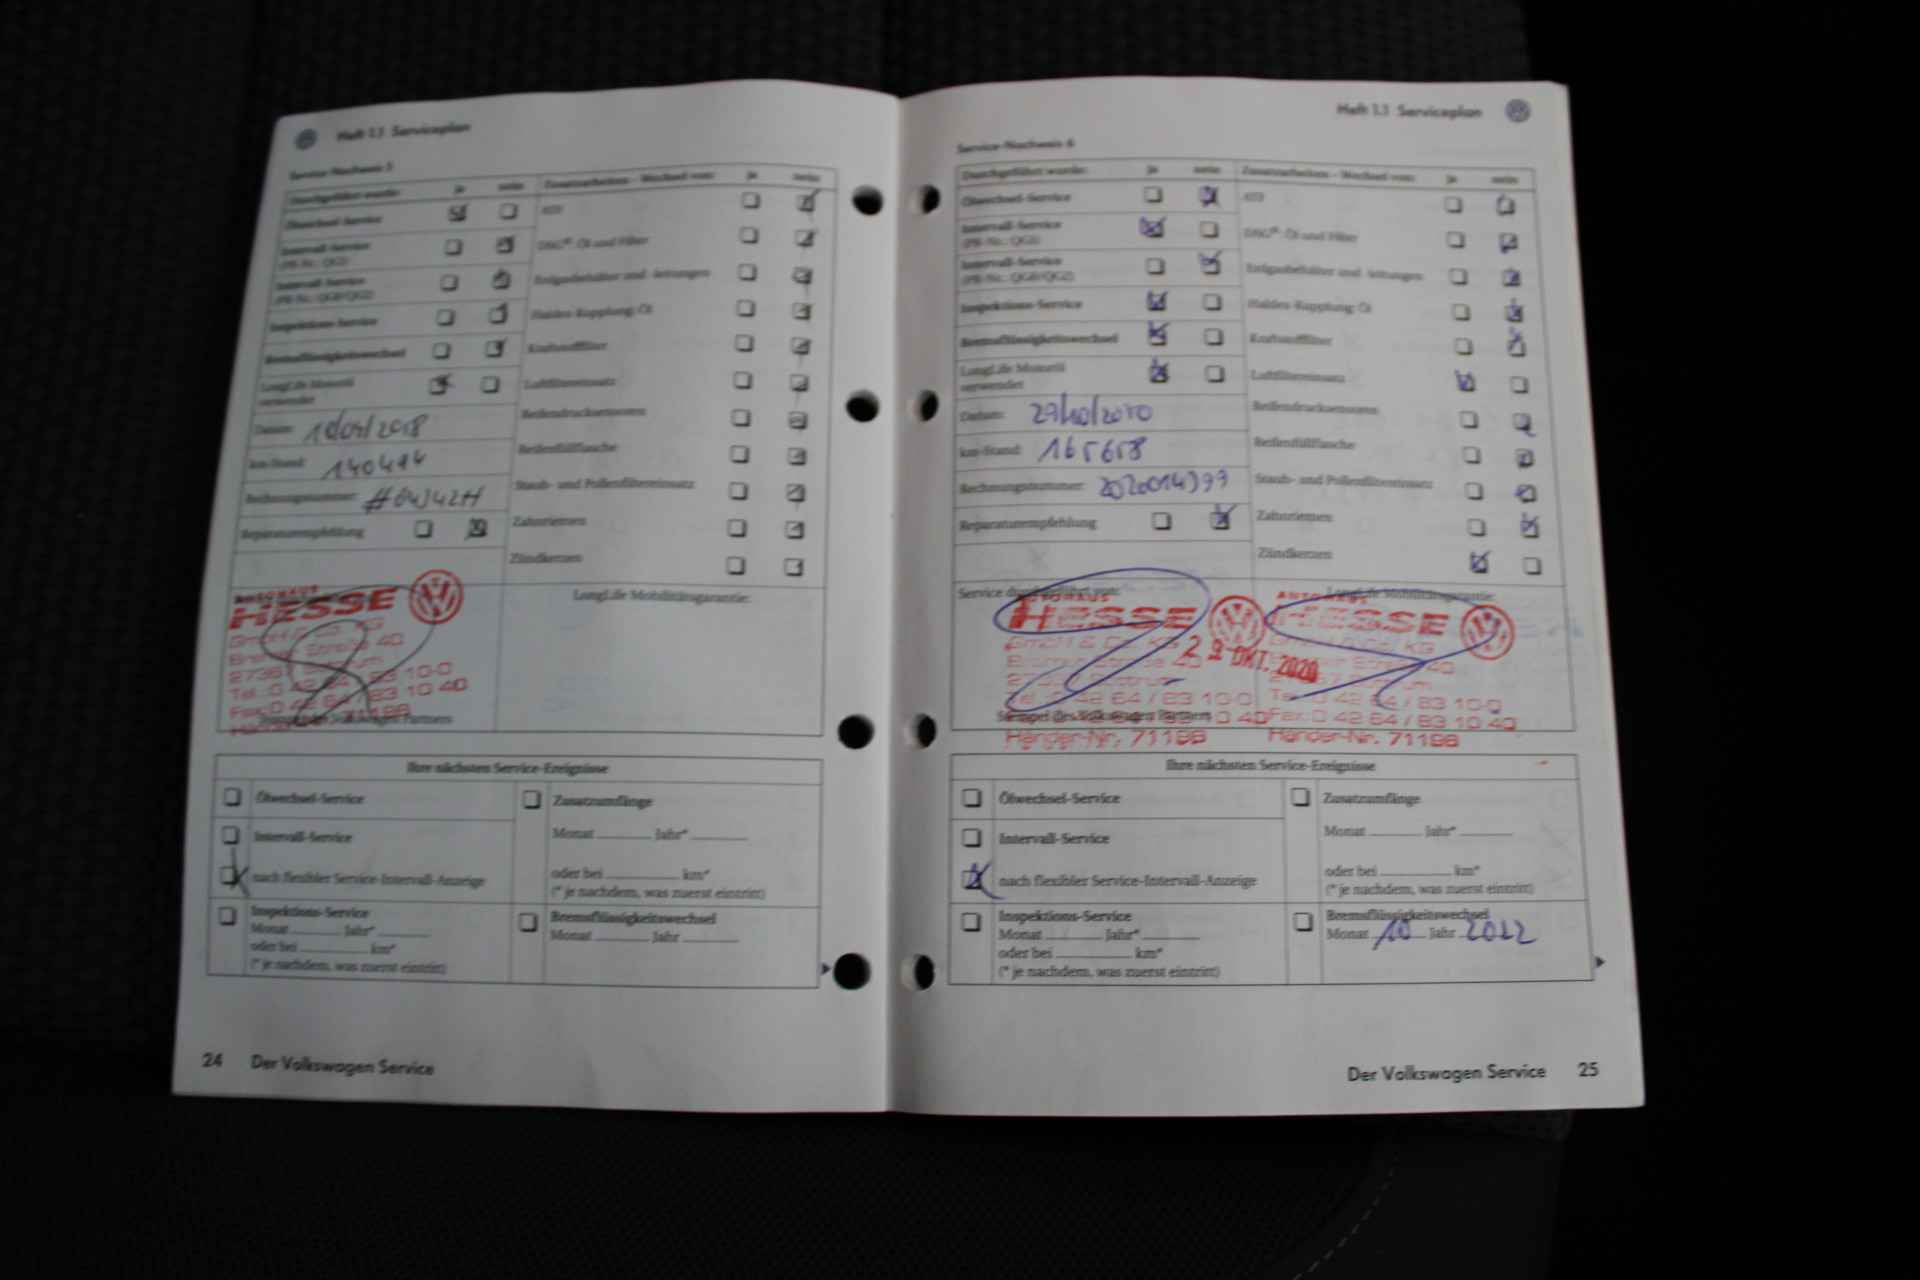 Heft 1.1 Serviceplan
Service-Nachweis 5
Durchgeführt wurde: ja nein
Ölwechsel-Service
Intervall-Service
(PR-Nr.: QG1)
Intervall-Service
(PR-Nr.: QG0/QG2)
Inspektions-Service
Bremsflüssigkeitswechsel
LongLife Motoröl
verwendet
Datum:
km-Stand: 140414
Rechnungsnummer:
Reparaturempfehlung
Zusatzarbeiten - Wechsel von: ja nein
ATF
DSG®-Öl und Filter
Erdgasbehälter und -leitungen
Haldex-Kupplung: Öl
Kraftstofffilter
Luftfiltereinsatz
Reifendrucksensoren
Reifenfüllflasche
Staub- und Pollenfiltereinsatz
Zahnriemen
Zündkerzen
AUTOHAUS
HESSE
GmbH & Co. KG
Tel.: 0 42 64 / 83 10-0
Fax: 0 42 64 / 83 10 40
LongLife Mobilitätsgarantie:
Ihre nächsten Service-Ereignisse
Ölwechsel-Service
Intervall-Service
nach flexibler Service-Intervall-Anzeige
Inspektions-Service
Monat Jahr*
oder bei km*
(* je nachdem, was zuerst eintritt)
Zusatzumfänge
Monat Jahr*
oder bei km*
(* je nachdem, was zuerst eintritt)
Bremsflüssigkeitswechsel
Monat Jahr
24 Der Volkswagen Service
Heft 1.1 Serviceplan
Service-Nachweis 6
Durchgeführt wurde: ja nein
Ölwechsel-Service
Intervall-Service
(PR-Nr.: QG1)
Intervall-Service
(PR-Nr.: QG0/QG2)
Inspektions-Service
Bremsflüssigkeitswechsel
LongLife Motoröl
verwendet
Datum: 29/10/2020
km-Stand: 165658
Rechnungsnummer:
Reparaturempfehlung
Zusatzarbeiten - Wechsel von: ja nein
ATF
DSG®-Öl und Filter
Erdgasbehälter und -leitungen
Haldex-Kupplung: Öl
Kraftstofffilter
Luftfiltereinsatz
Reifendrucksensoren
Reifenfüllflasche
Staub- und Pollenfiltereinsatz
Zahnriemen
Zündkerzen
Service durchgeführt von:
AUTOHAUS
HESSE
GmbH & Co. KG
29 OKT. 2020
Tel.: 0 42 64 / 83 10-0
Stempel des Volkswagen Partners
Händer-Nr. 71198
LongLife Mobilitätsgarantie:
AUTOHAUS
HESSE
Fax: 0 42 64 / 83 10 40
Händer-Nr. 71198
Ihre nächsten Service-Ereignisse
Ölwechsel-Service
Intervall-Service
nach flexibler Service-Intervall-Anzeige
Inspektions-Service
Monat Jahr*
oder bei km*
(* je nachdem, was zuerst eintritt)
Zusatzumfänge
Monat Jahr*
oder bei km*
(* je nachdem, was zuerst eintritt)
Bremsflüssigkeitswechsel
Monat 10 Jahr 2022
Der Volkswagen Service 25